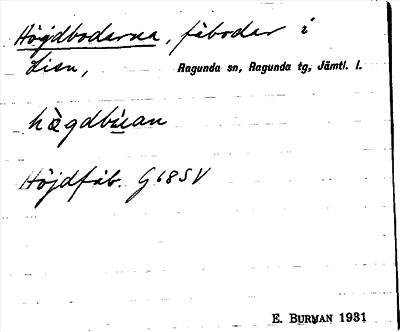 Höjdbodarna, fäbodar i
Lien,
Ragunda sn, Ragunda tg, Jämtl. l.
hö̀gdbúan
Höjdfäb. G68SV
E. BURMAN 1931